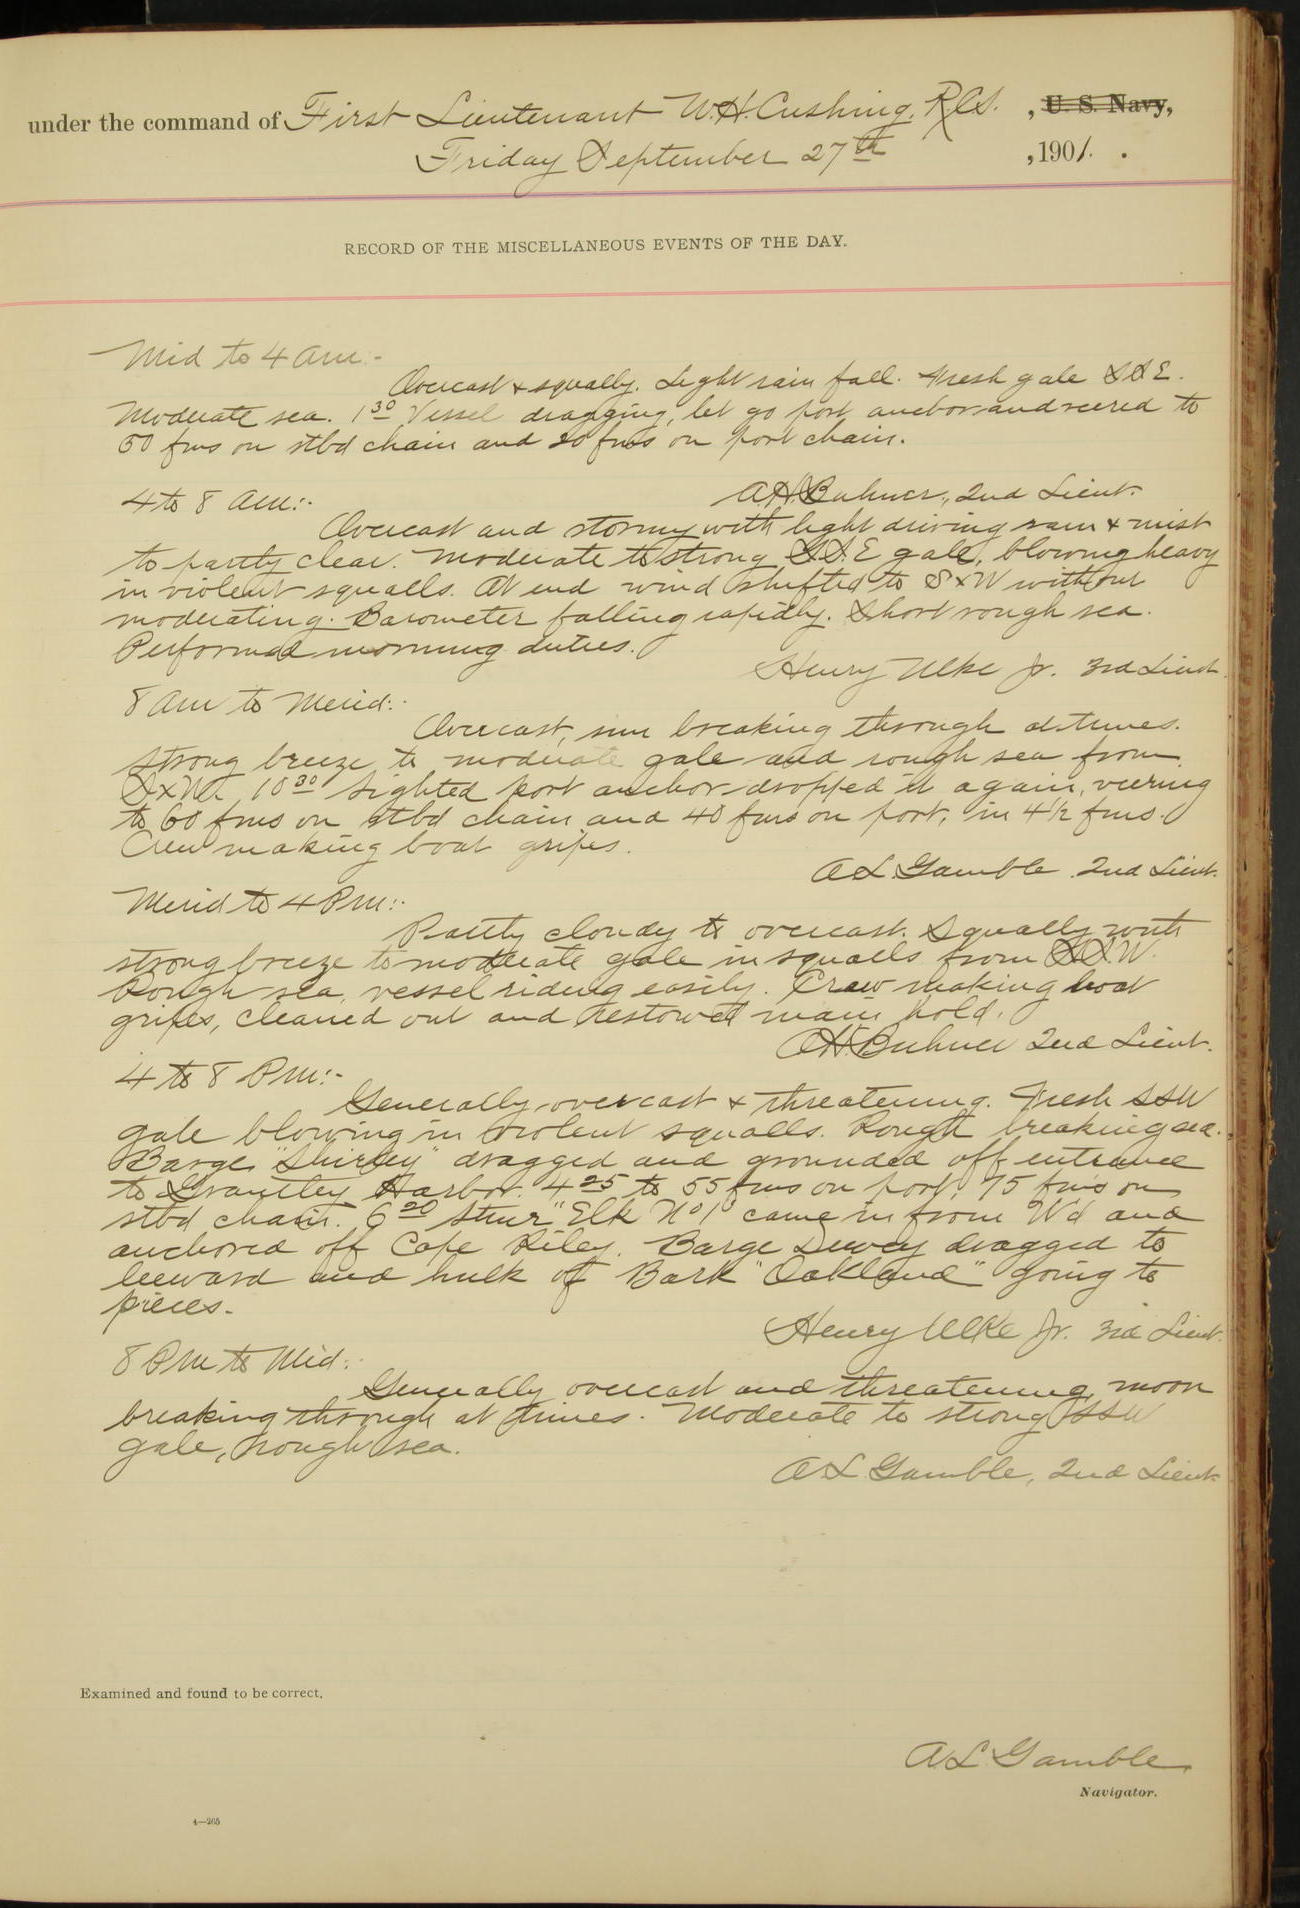 under the command of First Lieutenant W.H. Cushing, R.C.S. , U. S. Navy,
Friday September 27th , 1901.
RECORD OF THE MISCELLANEOUS EVENTS OF THE DAY.
Mid to 4 am:-
Overcast & squally. Light rain fall. Fresh gale SSE.
Moderate sea. 1 30 Vessel dragging, let go port anchor and veered to
50 fms on stbd chain and 20 fms on port chain.
A.H. Buhner, 2nd Lieut.
4 to 8 am:-
Overcast and stormy with light driving rain & mist
to partly clear. Moderate to strong S.S.E gale, blowing heavy
in violent squalls. At end wind shifted to SxW without
moderating. Barometer falling rapidly. Short rough sea.
Performed morning duties.
Henry Ulke Jr. 3rd Lieut.
8 am to Merid:-
Overcast, sun breaking through at times.
Strong breeze to moderate gale and rough sea from
SxW. 10 30 sighted port anchor dropped it again, veering
to 60 fms on stbd chain and 40 fms on port, in 4 1/2 fms.
Crew making boat gripes.
A.L. Gamble 2nd Lieut.
Merid to 4 Pm:-
Partly cloudy to overcast. Squally with
strong breeze to moderate gale in squalls from SSW.
Rough sea, vessel riding easily. Crew making boat
gripes, cleaned out and restowed main hold.
A.H. Buhner 2nd Lieut.
4 to 8 Pm:-
Generally overcast & threatening. Fresh SSW
gale blowing in violent squalls. Rough breaking sea.
Barge "Shirley" dragged and grounded off entrance
to Grantley Harbor. 4 25 to 55 fms on port, 75 fms on
stbd chain. 6 20 Stmr "Elk No 1" came in from W'd and
anchored off Cape Riley. Barge Dewey dragged to
leeward and hulk of Bark "Oakland" going to
pieces.
Henry Ulke Jr. 3rd Lieut.
8 Pm to Mid:-
Generally overcast and threatening, moon
breaking through at times. Moderate to strong SSW
gale, rough sea.
A.L. Gamble, 2nd Lieut.
Examined and found to be correct.
A.L. Gamble
Navigator.
4—265